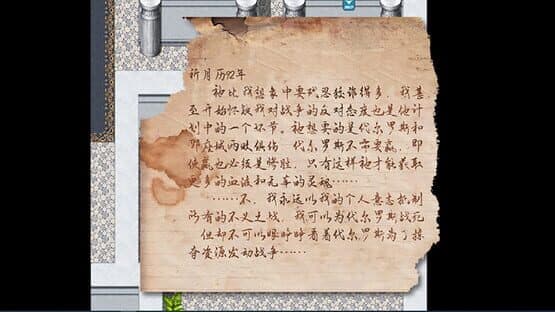 祈月历92年
祂比我想象中要残忍狡诈得多，我甚
至开始怀疑我对战争的反对态度也是他计
划中的一个环节。祂想要的是代尔罗斯和
那座城两败俱伤 代尔罗斯不需要赢，即
使赢也必须是惨胜，只有这样祂才能获取
更多的血液和无辜的灵魂……
……不，我永远以我的个人意志抵制
所有的不义之战，我可以为代尔罗斯战死
但却不可以眼睁睁看着代尔罗斯为了掠
夺资源发动战争……